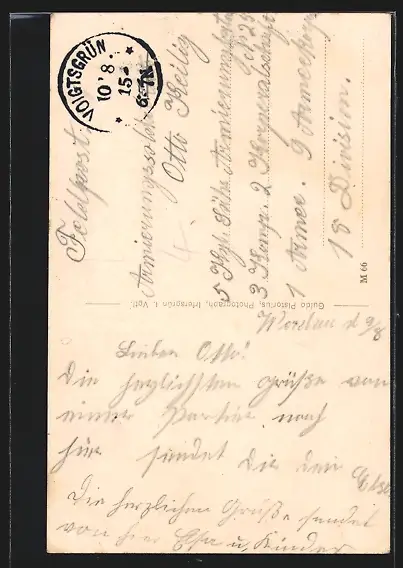 VOIGTSGRÜN
10.8.
15
6-7N
Feldpost
Armierungssoldat
Otto Heilig
5 Kgl. Sächs. Armierungsbat.
3 Komp. 2 Korporalschaft
1 Armee. 9 Armeekorps
18 Division.
M 66
Guido Pistorius, Photograph, Irfersgrün i. Vgtl.
d 9/8
Lieber Otto!
Die herzlichsten Grüße von
einer Partie nach
hier sendet Dir dein
Die herzlichen Grüße sendet
von hier u. Kinder